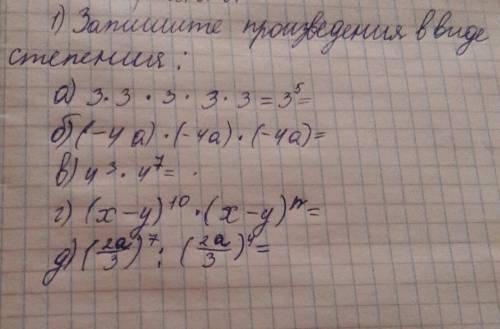 1) Запишите произведения в виде
степения:
а) 3 · 3 · 3 · 3 · 3 = 3⁵ =
б) (-4a) · (-4a) · (-4a) =
в) y³ · y⁷ =
г) (x-y)¹⁰ · (x-y)ⁿ =
д) (2a/3)⁷ : (2a/3)⁴ =